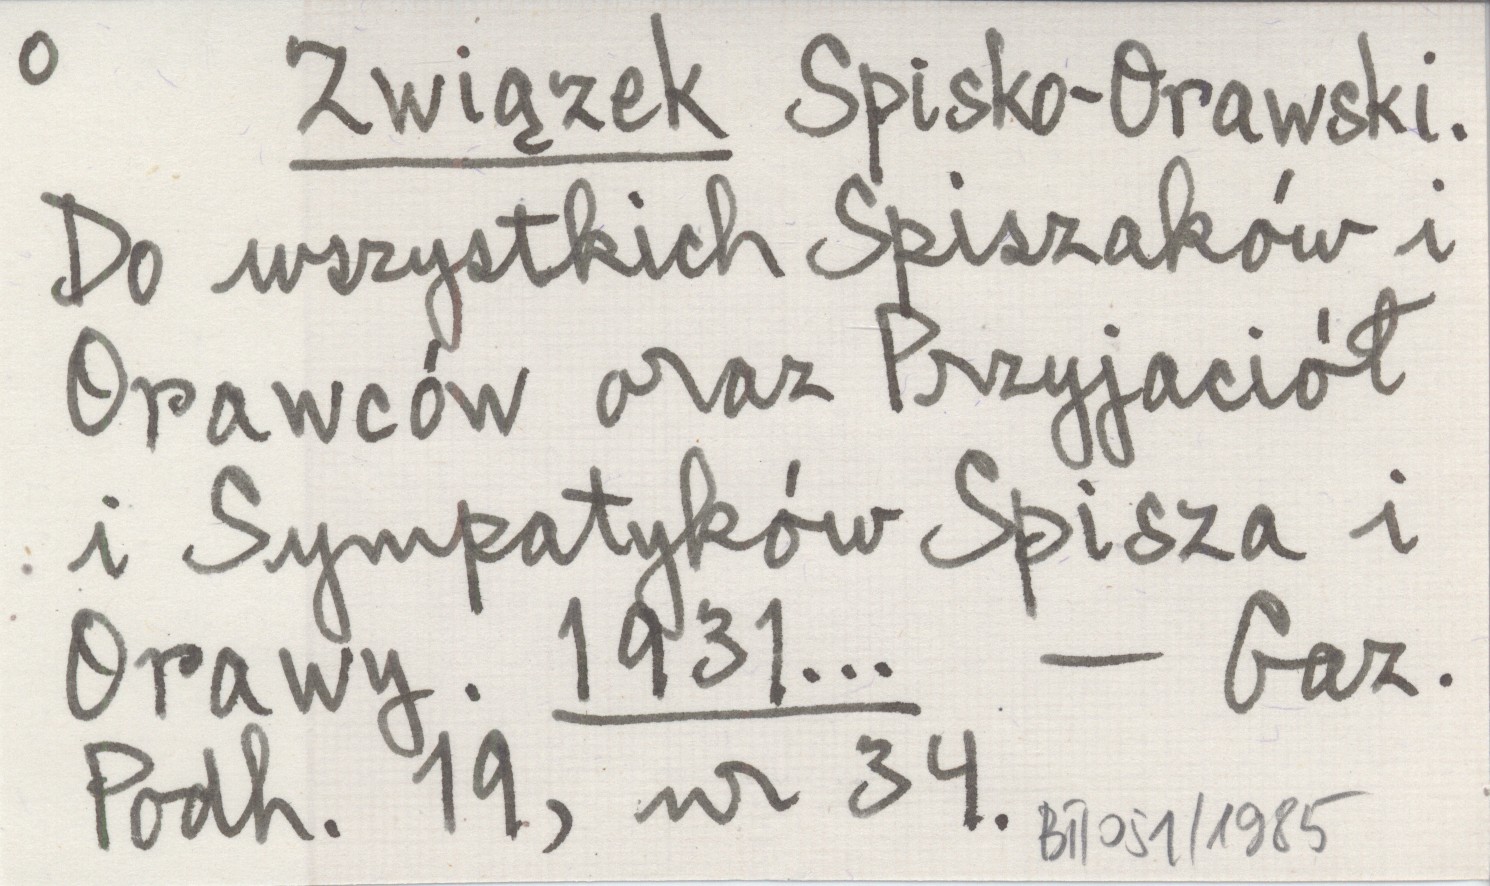 o Związek Spisko-Orawski.
Do wszystkich Spiszaków i
Orawców oraz Przyjaciół
i Sympatyków Spisza i
Orawy. 1931... — Gaz.
Podh. 19, nr 34.
BII 051/1985